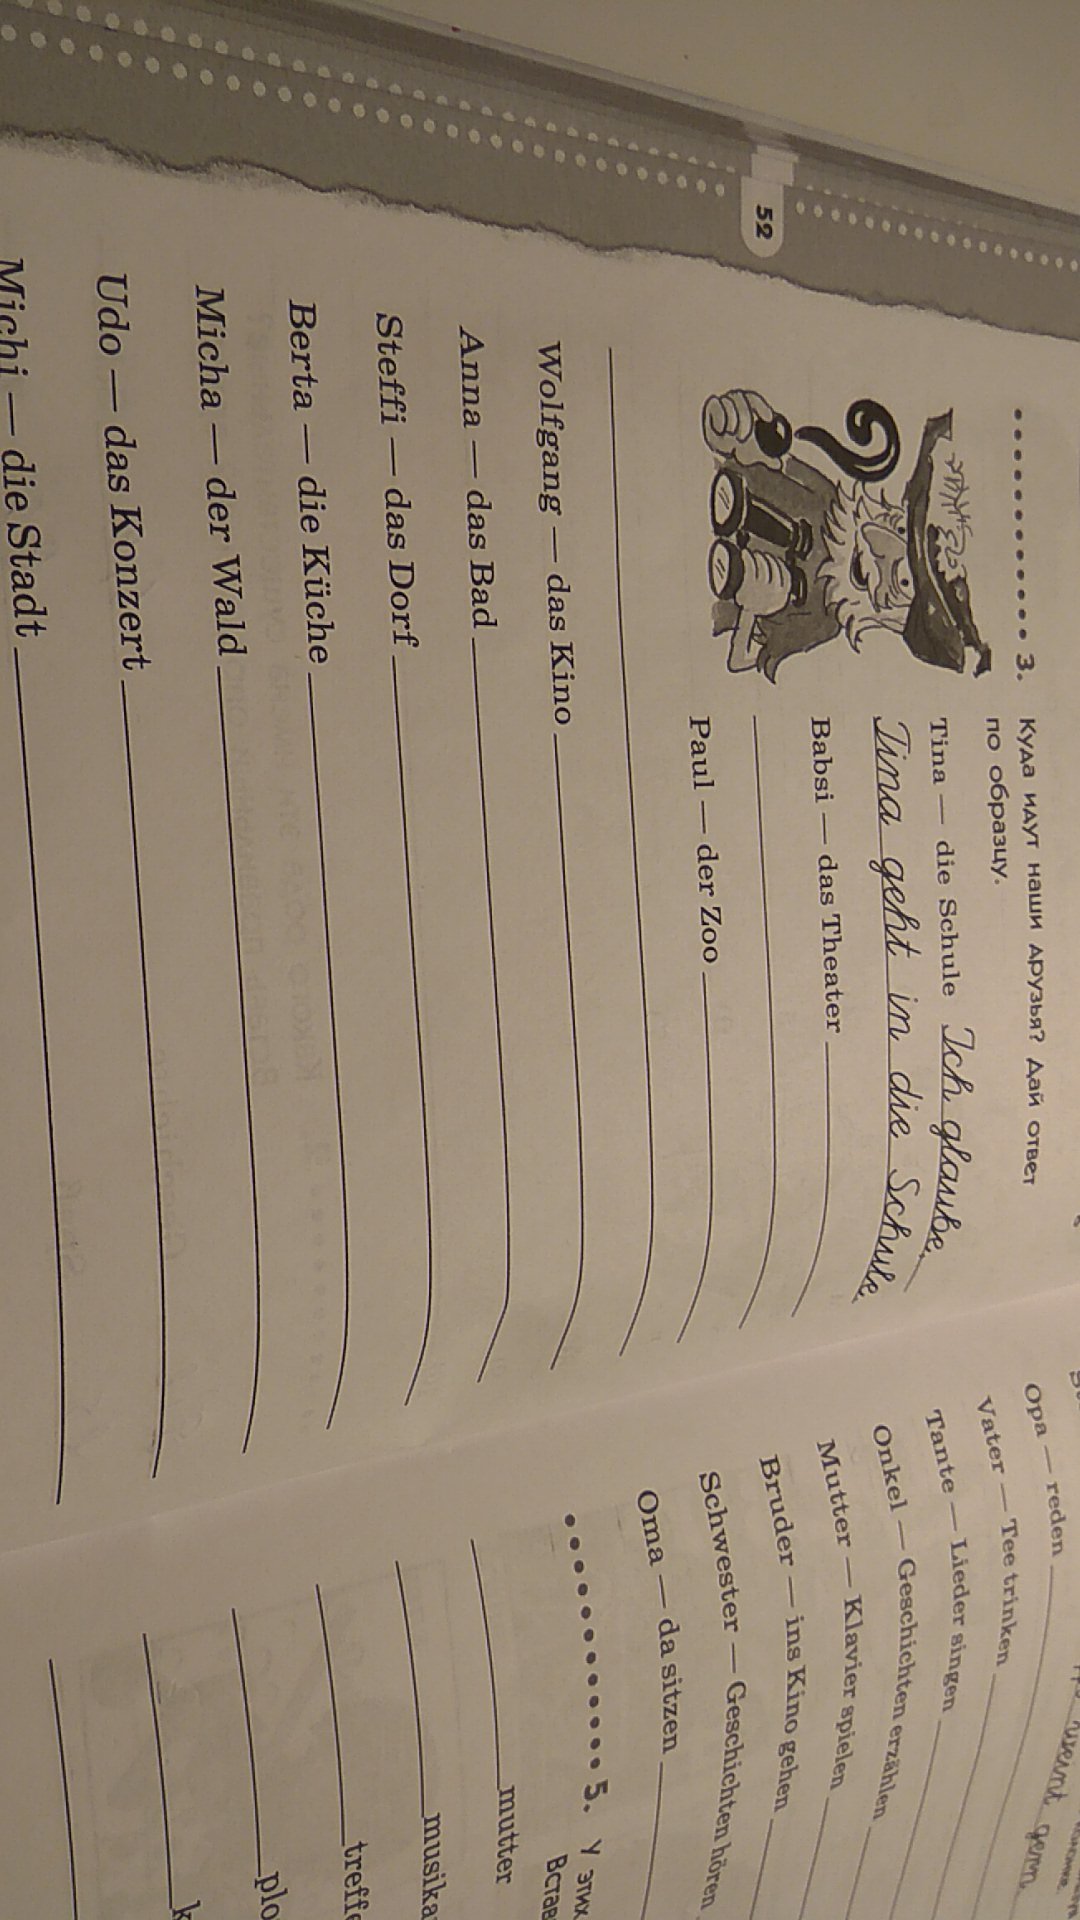 52
3. Куда идут наши друзья? Дай ответ
по образцу.
Tina — die Schule Ich glaube,
Tina geht in die Schule.
Babsi — das Theater
Paul — der Zoo
Wolfgang — das Kino
Anna — das Bad
Steffi — das Dorf
Berta — die Küche
Micha — der Wald
Udo — das Konzert
Michi — die Stadt
Opa — reden
Vater — Tee trinken
Tante — Lieder singen
Onkel — Geschichten erzählen
Mutter — Klavier spielen
Bruder — ins Kino gehen
Schwester — Geschichten hören
Oma — da sitzen
5. У этих
Встав
mutter
musika
treffe
plo
k